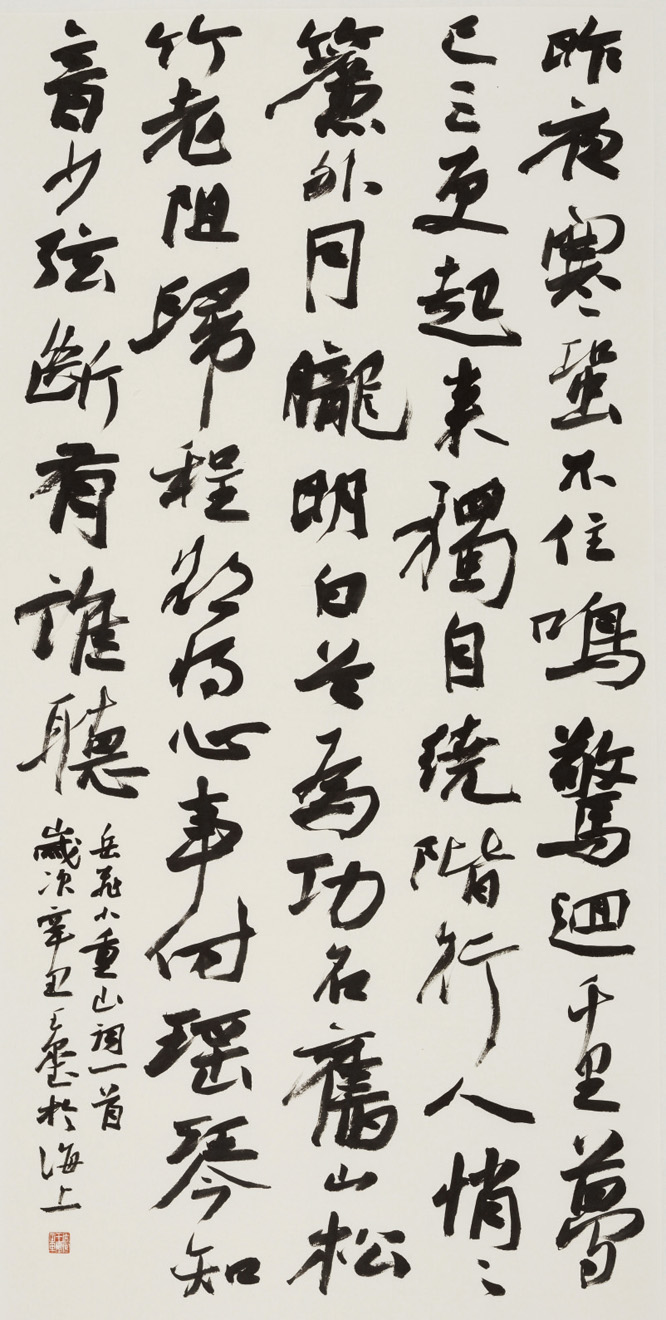 昨夜寒蛩不住鳴驚迴千里夢
已三更起来獨自繞階行人悄〻
簾外月朧明白首為功名舊山松
竹老阻歸程欲將心事付瑶琴知
音少弦断有誰聽
岳飛小重山詞一首
歲次辛丑王於海上